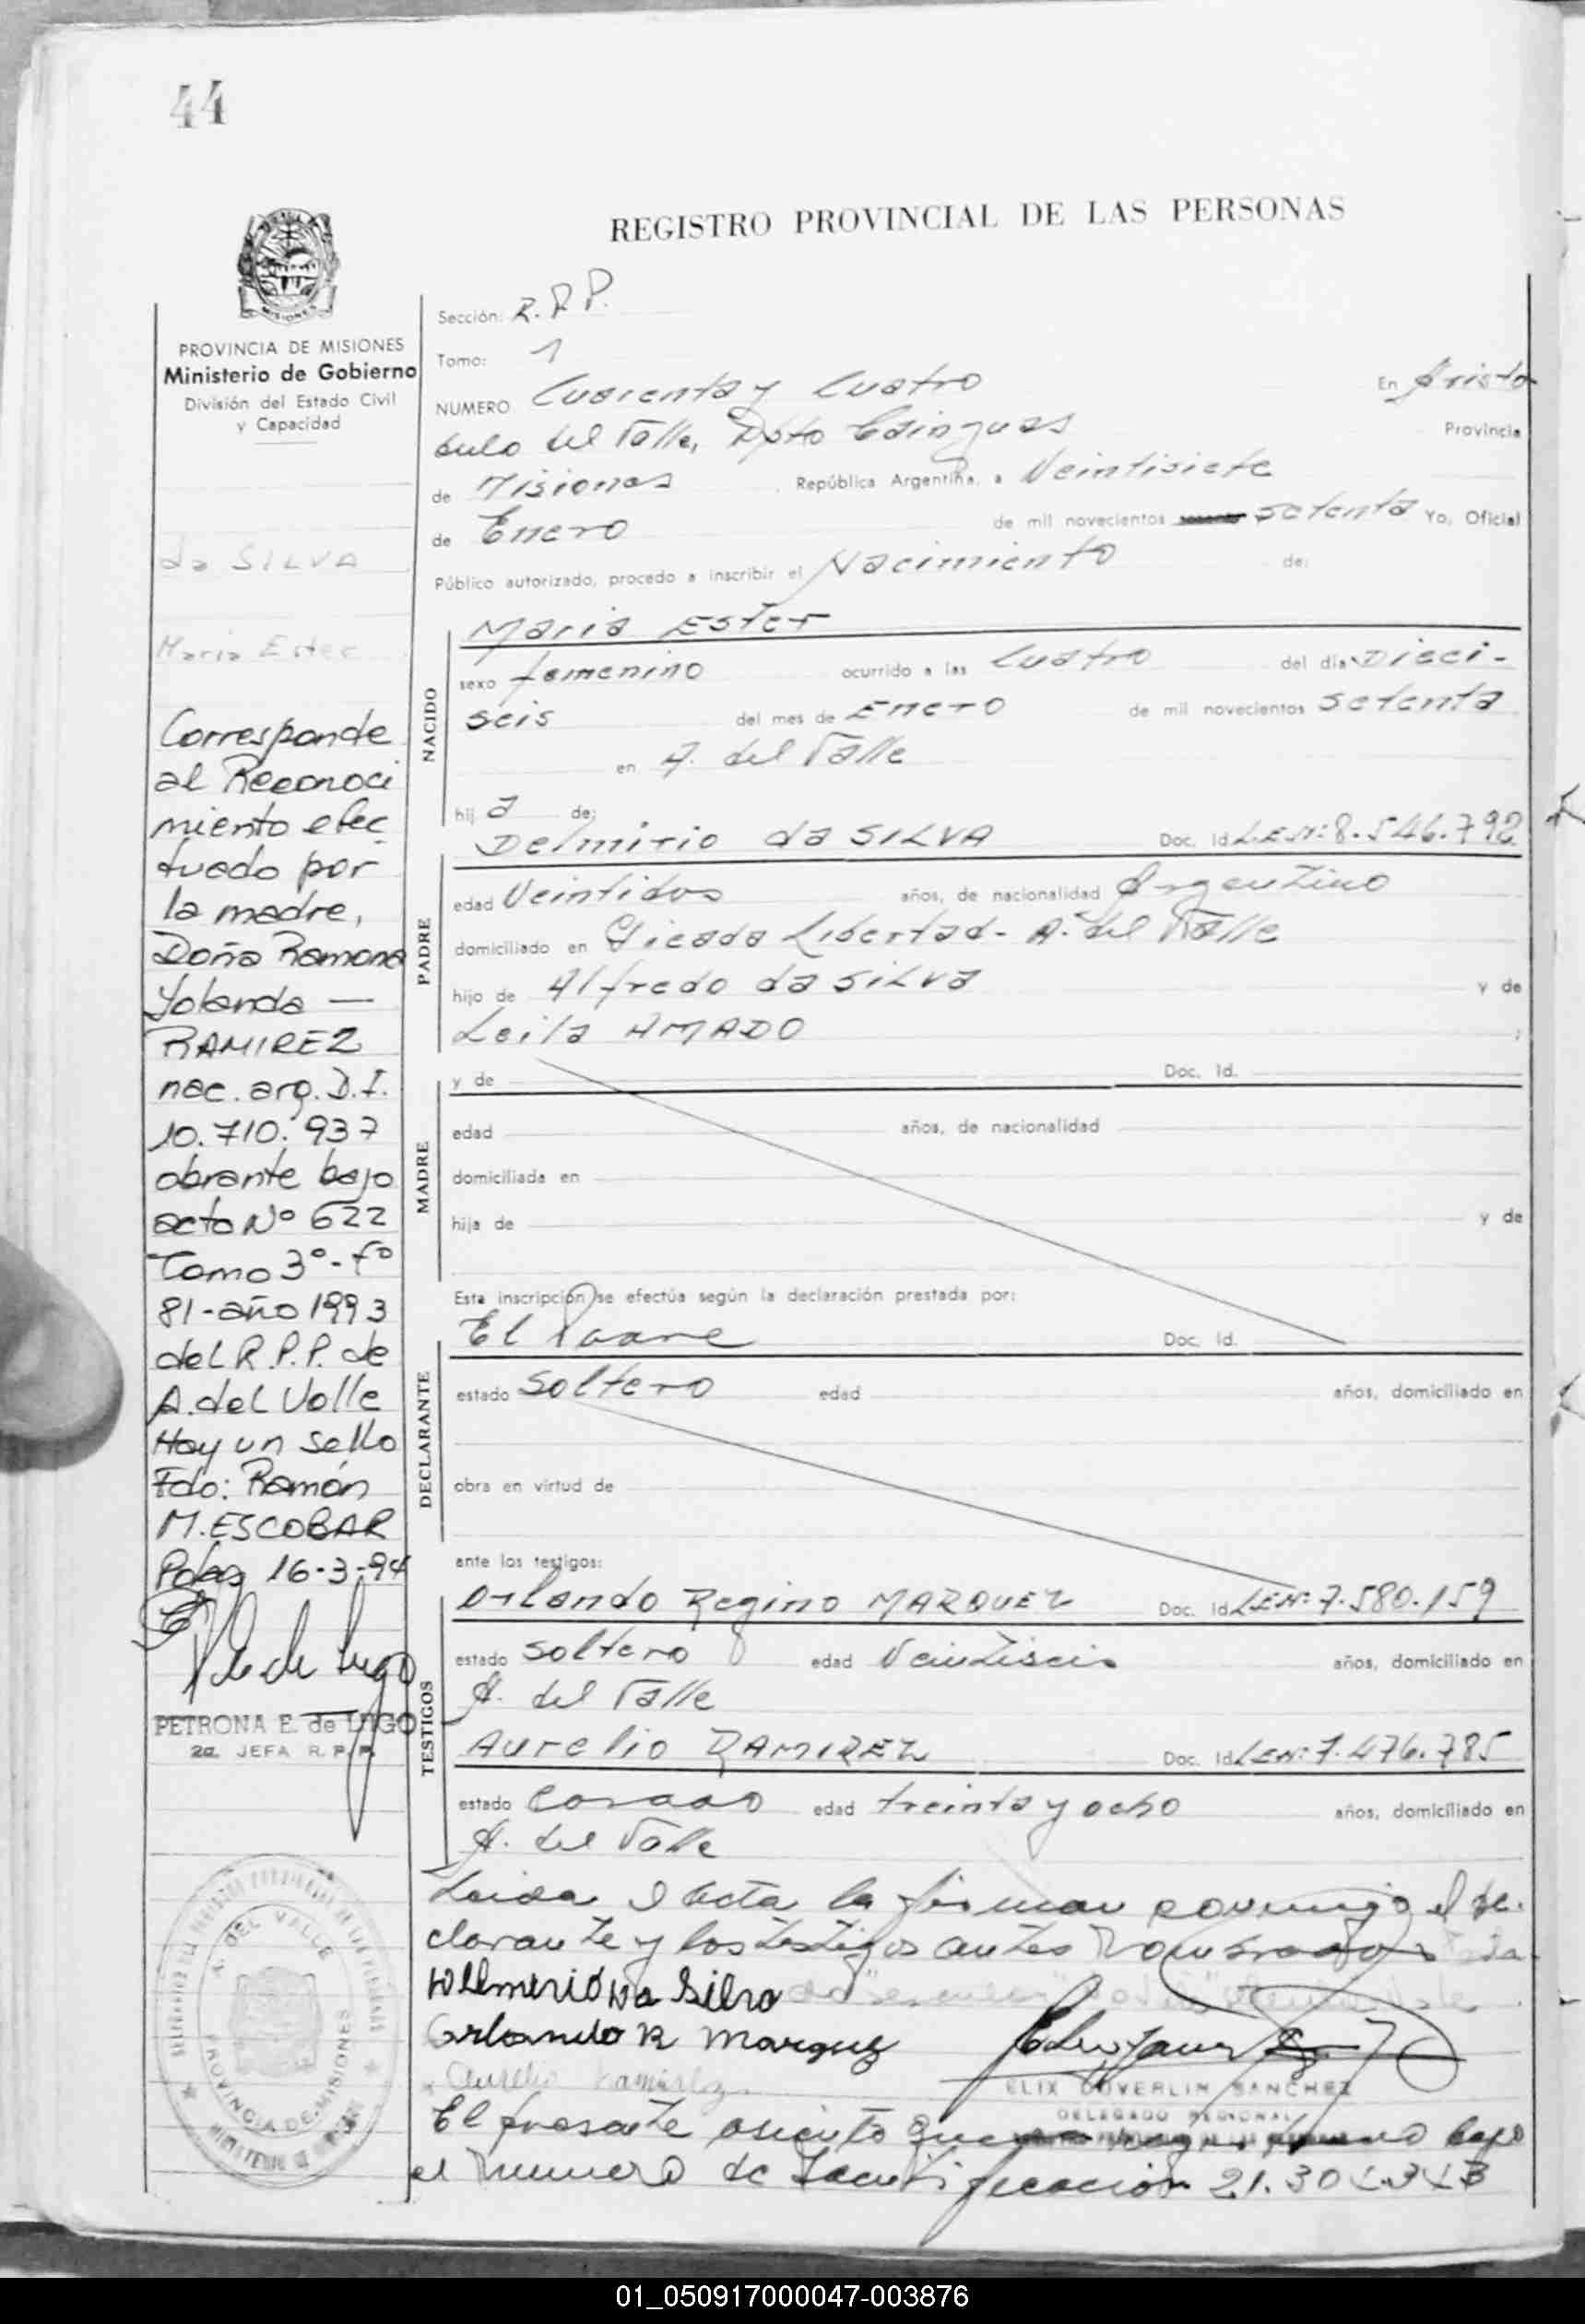 44
REGISTRO PROVINCIAL DE LAS PERSONAS
MISIONES
PROVINCIA DE MISIONES
Ministerio de Gobierno
División del Estado Civil
y Capacidad
da SILVA
Maria Ester
Corresponde
al Reconoci
miento efec
tuado por
la madre,
Doña Ramona
Yolanda —
RAMIREZ
nac. arg. D.I.
10.710.937
obrante bajo
acta Nº 622
Tomo 3º - fº
81 - año 1993
del R.P.P. de
A. del Valle
Hay un sello
Fdo: Ramón
M. ESCOBAR
Pdas 16-3-94
PETRONA E. de LUGO
2a. JEFA R. P. P.
A. DEL VALLE
PROVINCIA DE MISIONES
Sección: R.P.P.
Tomo: 1
NUMERO Cuarenta y Cuatro En Aristo
bulo del Valle, Dpto Cainguas Provincia
de Misiones República Argentina, a Veintisiete
de Enero de mil novecientos setenta Yo, Oficial
Público autorizado, procedo a inscribir el Nacimiento de:
NACIDO
Maria Ester
sexo femenino ocurrido a las Cuatro del día Dieci-
seis del mes de Enero de mil novecientos setenta
en A. del Valle
hij a de:
PADRE
Delmirio da SILVA Doc. Id. L.E.Nº: 8.546.792
edad Veintidos años, de nacionalidad Argentino
domiciliado en Picada Libertad - A. del Valle
hijo de Alfredo da SILVA y de
Leila AMADO ;
MADRE
y de Doc. Id.
edad años, de nacionalidad
domiciliada en
hija de y de
Esta inscripción se efectúa según la declaración prestada por:
DECLARANTE
El Padre Doc. Id.
estado Soltero edad años, domiciliado en
obra en virtud de
ante los testigos:
TESTIGOS
Orlando Regino MARQUEZ Doc. Id. L.E.Nº: 7.580.159
estado soltero edad Veintiseis años, domiciliado en
A. del Valle
Aurelio RAMIREZ Doc. Id. L.E.Nº: 7.476.785
estado Casado edad treinta y ocho años, domiciliado en
A. del Valle
Leida el Acta la firman conmigo el de-
clarante y los testigos antes nombrados
Delmerio Da Silva
Orlando R Marquez
Aurelio Ramirez
ELIX DUVERLIN SANCHEZ
DELEGADO REGIONAL
El presente asiento bajo
el numero de Identificacion 21.304.343
01_050917000047-003876